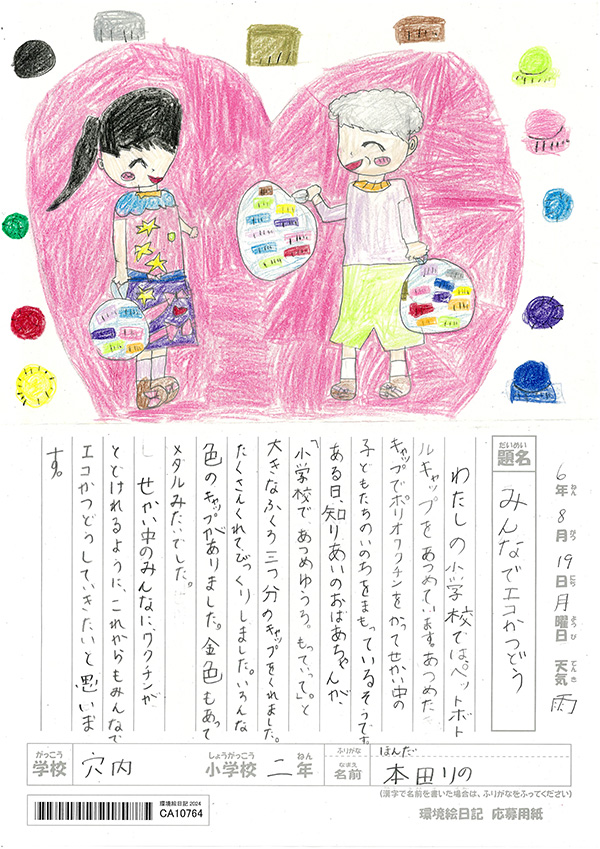 6年 8月 19日 月曜日 天気 雨
ねん がつ にち ようび てんき
だいめい
題名
みんなでエコかつどう
わたしの小学校では、ペットボト
ルキャップをあつめています。あつめた
キャップでポリオワクチンをかってせかい中の
子どもたちのいのちをまもっているそうです。
ある日、知りあいのおばあちゃんが、
「小学校で、あつめゆうろ。もっていって。」と
大きなふくろ三つ分のキャップをくれました。
たくさんくれて、びっくりしました。いろんな
色のキャップがありました。金色もあって
メダルみたいでした。
せかい中のみんなに、ワクチンが
とどけれるように、これからもみんなで
エコかつどうしていきたいと思いま
す。
がっこう しょうがっこう ねん ふりがな ほんだ
学校 穴内 小学校 二年 なまえ 名前 本田りの
(漢字で名前を書いた場合は、ふりがなをふってください)
環境絵日記 2024
CA10764
環境絵日記 応募用紙